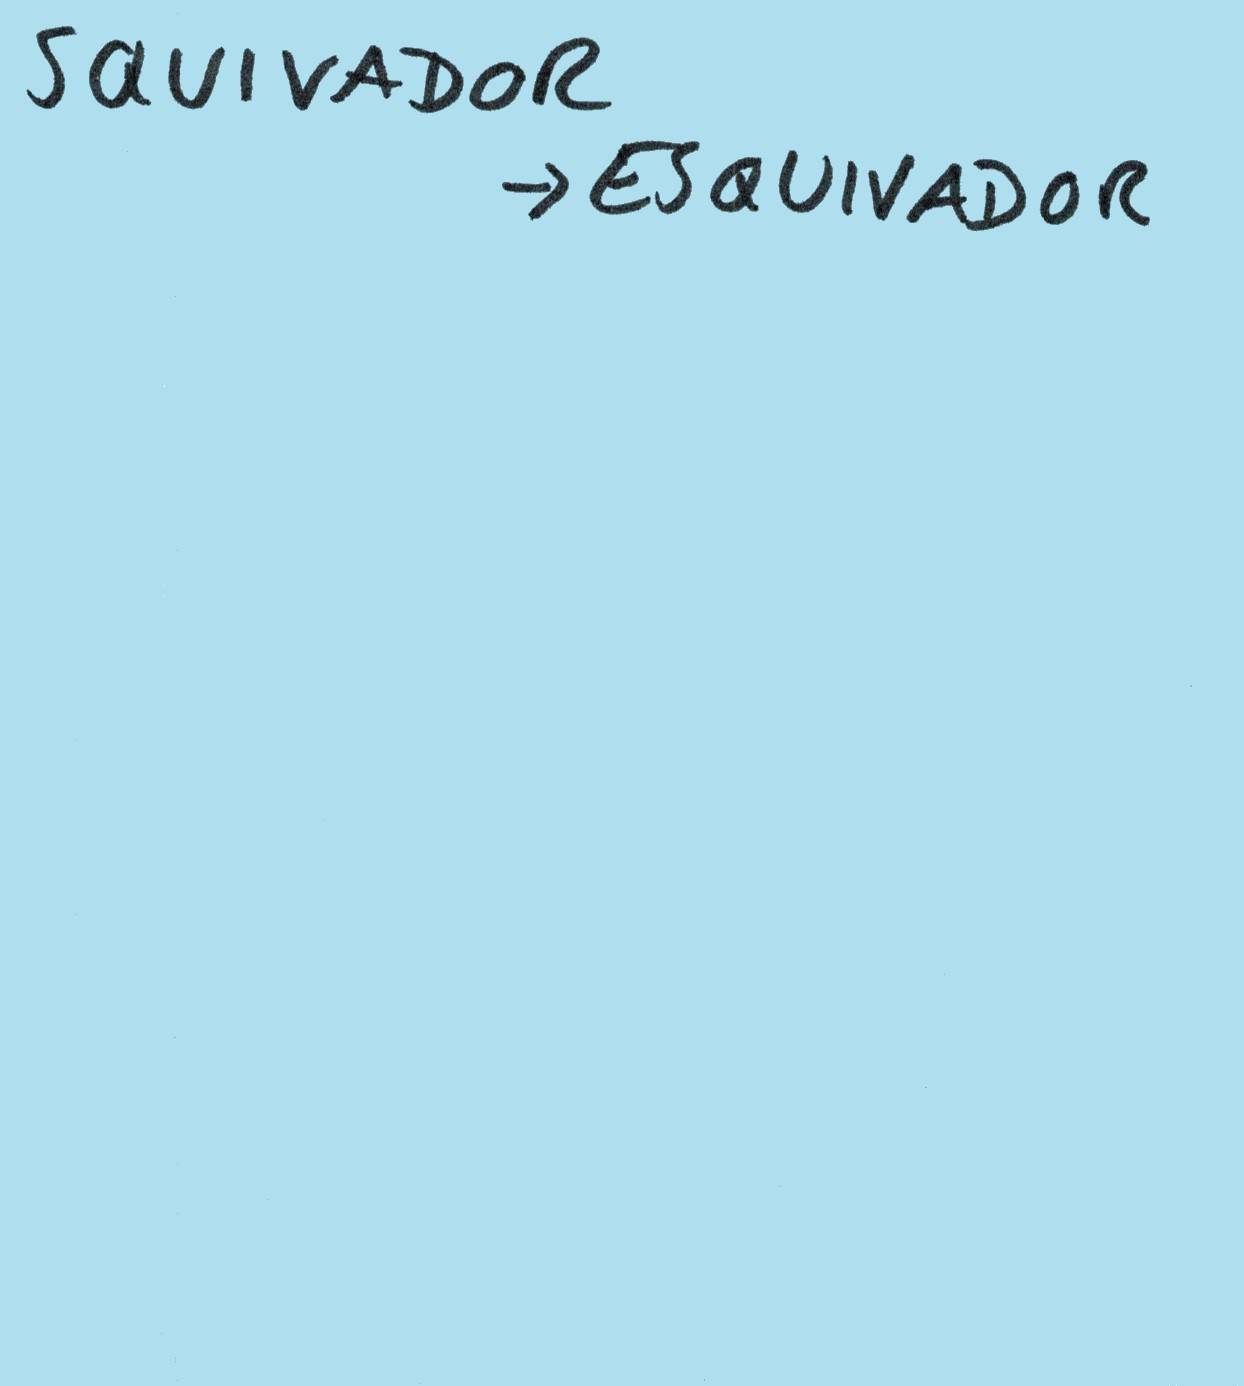 SQUIVADOR
→ ESQUIVADOR